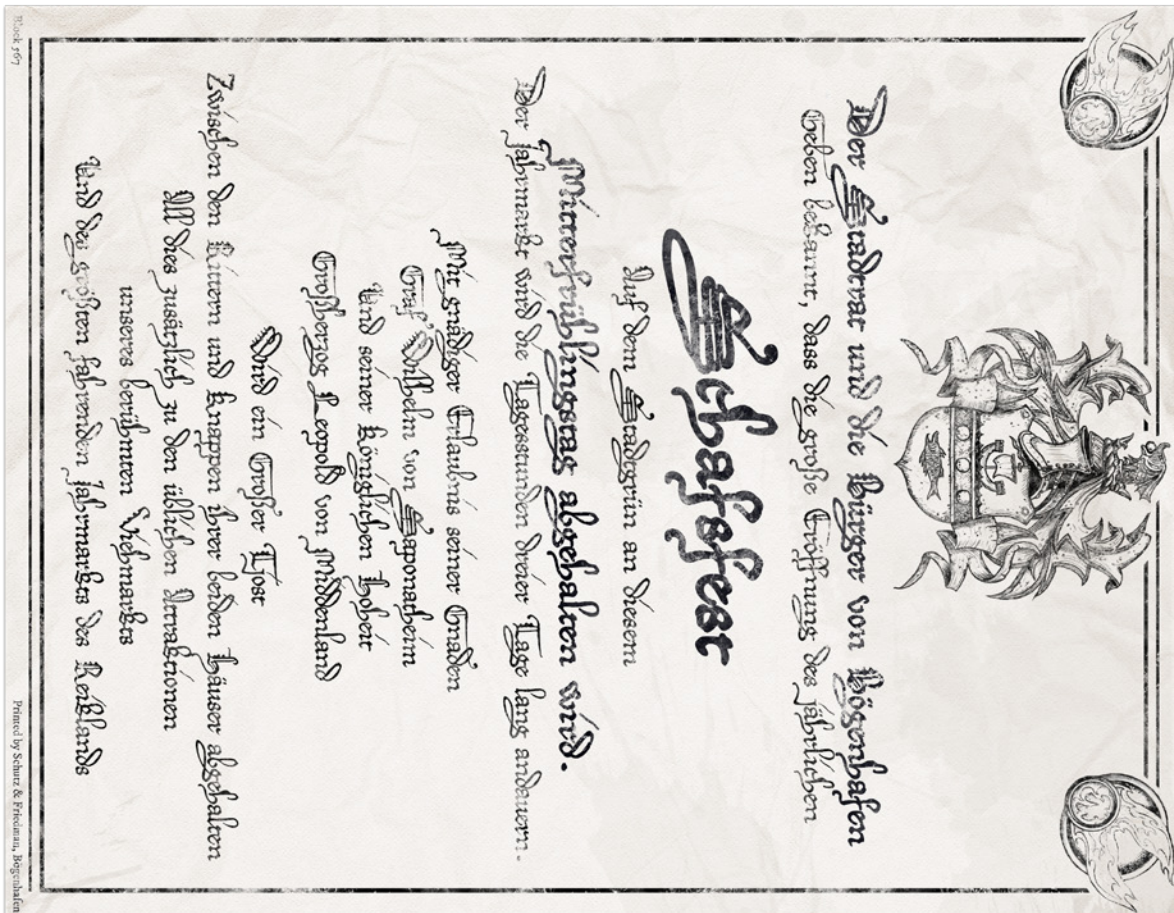 Der Stadtrat und die Bürger von Bögenhafen
Geben bekannt, dass die große Eröffnung des jährlichen
Schafsfest
Auf dem Stadtgrün an diesem
Mitterfrühlingstag abgehalten wird.
Der Jahrmarkt wird die Tagesstunden dreier Tage lang andauern.
Mit gnädiger Erlaubnis seiner Gnaden
Graf Wilhelm von Saponatheim
Und seiner Königlichen Hoheit
Großherzog Leopold von Middenland
Wird ein Großer Tjost
Zwischen den Rittern und Knappen ihrer beiden Häuser abgehalten
All dies zusätzlich zu den üblichen Attraktionen
unseres berühmten Viehmarkts
Und des größten fahrenden Jahrmarkts des Reiklands
Block 567
Printed by Schutz & Friedman, Bögenhafen